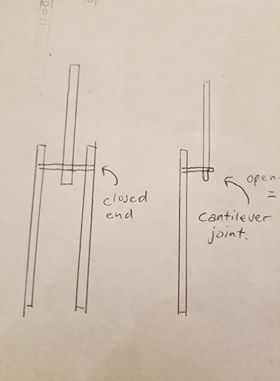 closed
end
open-
=
cantilever
joint.